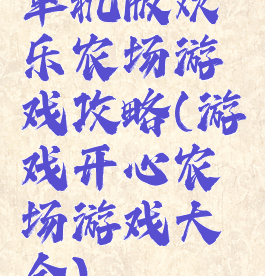 单机版欢
乐农场游
戏攻略(游
戏开心农
场游戏大
全)